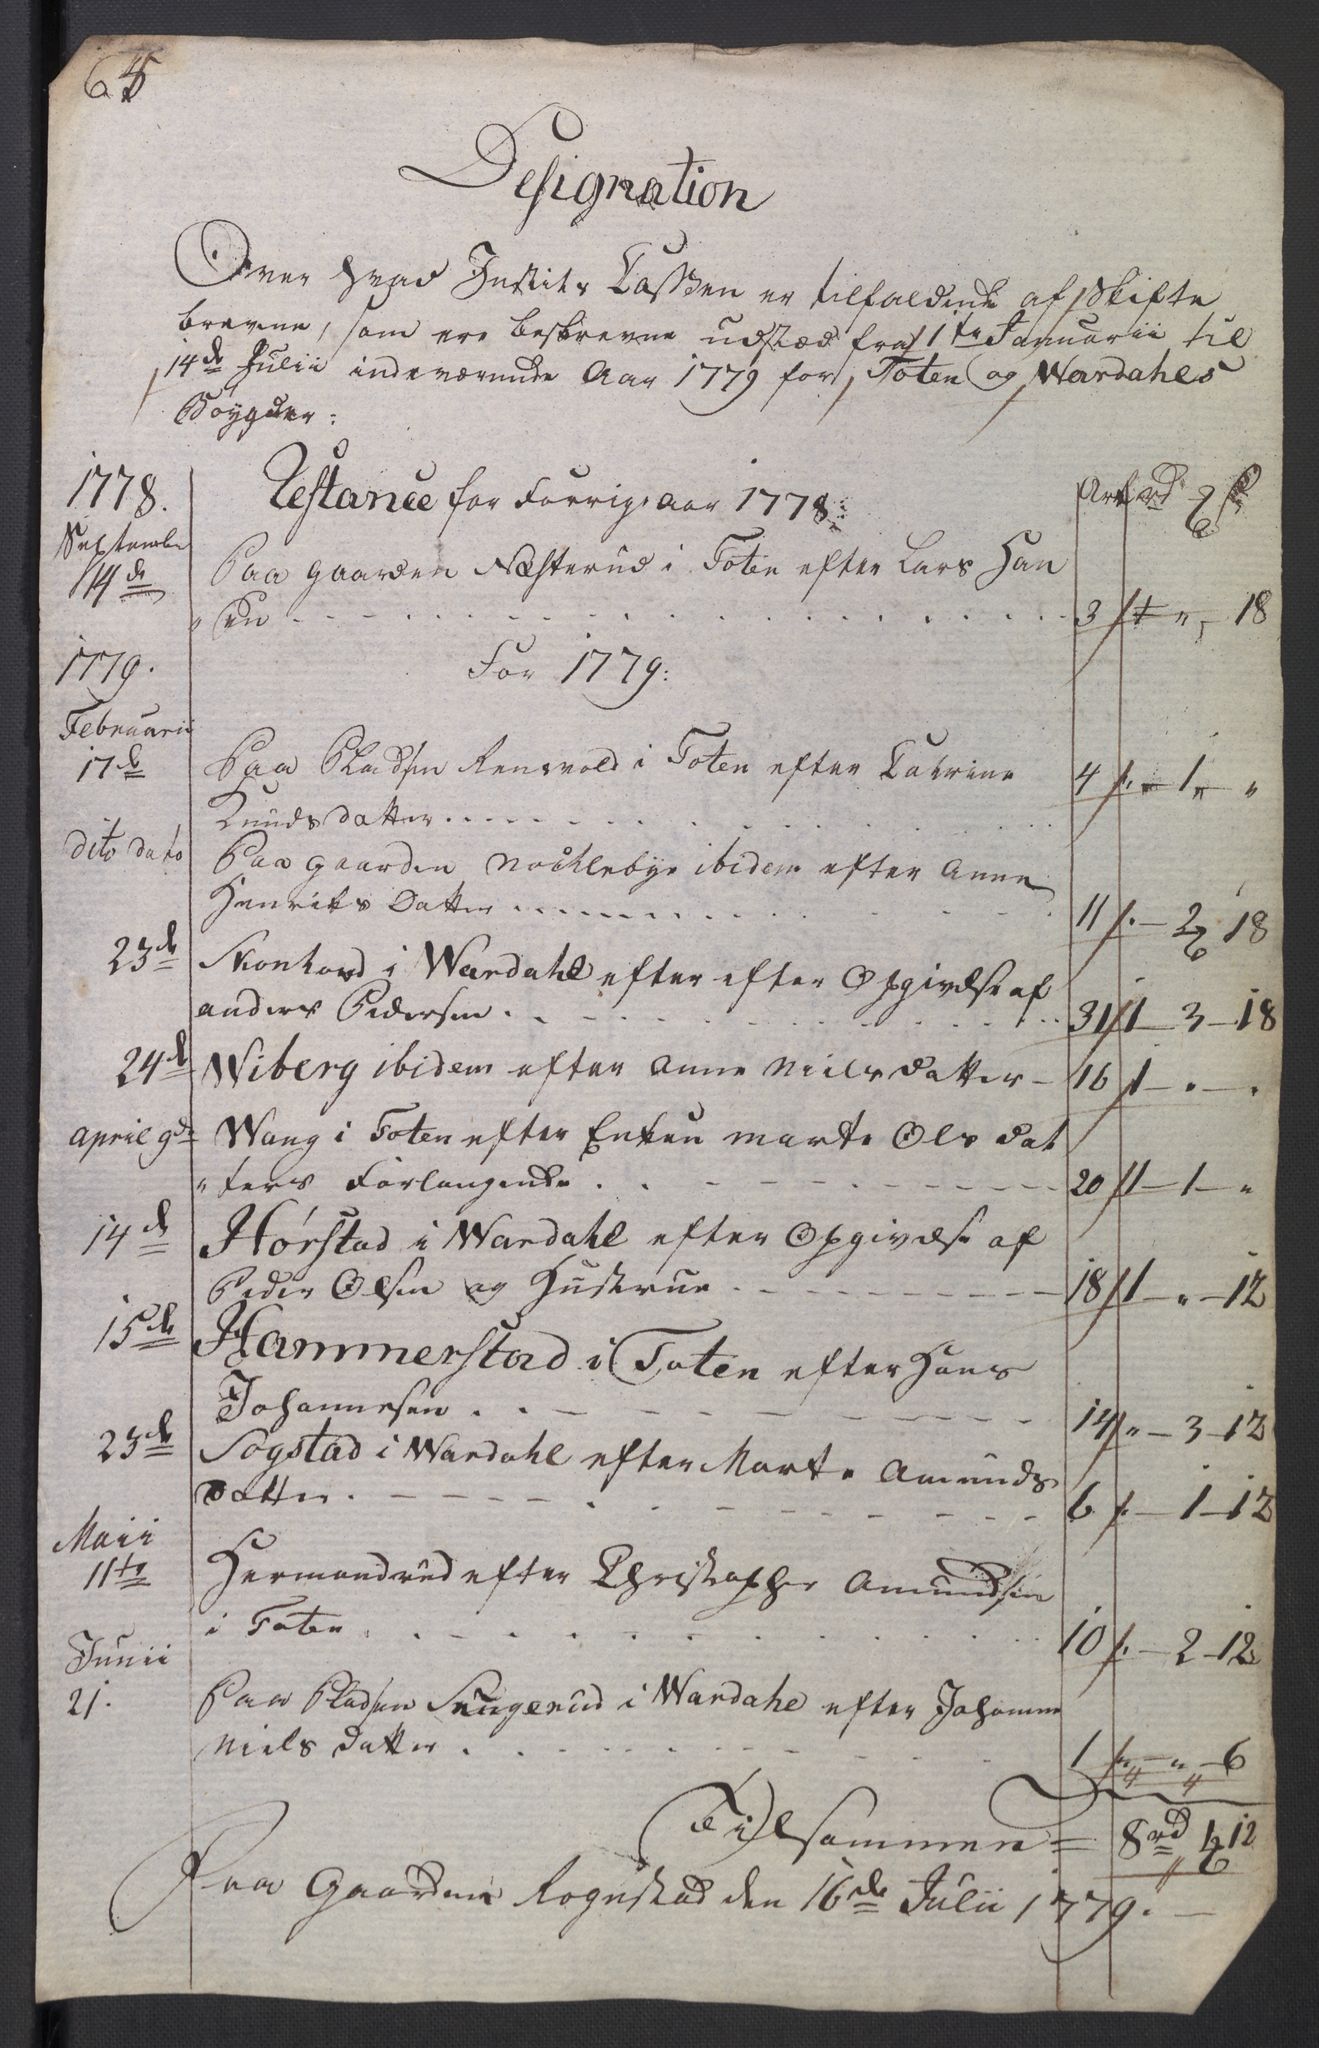 65
Designation
Over hvad Justits Cassen er tilfaldende af Skifte
brevene, som ere beskrevne udstæd fra 1te Januarii til
14de Julii indeværende Aar 1779 for Toten og Wardahls
Bøygder:
1778. Restance for Forrige aar 1778: Ark rd ß
Septembr
14de Paa gaarden Næsterud i Toten efter Lars Han
"sen 3 " 18
1779. For 1779:
Februarii
17de Paa Pladsen Rensvold i Toten efter Catrine 4 - 1 "
Knudsdatter
dito dato Paa gaarden Nøcklebye ibidem efter Anne
Henriks Datter 11 - 2 18
23de Skonhord i Wardahl efter efter Opgivelse af
anders Pedersen 31 1 - 3 - 18
24de Wiberg ibidem efter Anne Niels datter - 16 1 " "
April 9de Wang i Toten efter Enken Marte Ols dat
"ters Forlangende 20 1 - 1 - "
14de Hørstad i Wardahl efter Opgivelse af
Peder Olsen og Hustrue 18 1 - " - 12
15de Hammerstad i Toten efter Hans
Johannesen 14 " - 3 - 12
23de Sogstad i Wardahl efter Marte Amunds
Datter 6 - 1 - 12
Maii
11te Hermandrud efter Christopher Amundsen
i Toten 10 - 2 - 12
Junii
21. Paa Pladsen Seugerud i Wardahl efter Johanne
Niels datter 1 " - " - 6
Tilsammen = 8rd 1 12
Paa Gaarden Rognstad den 16de Julii 1779. -